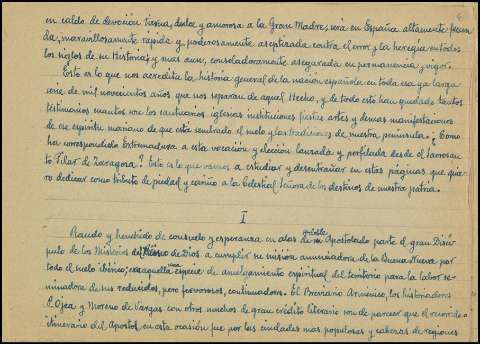 en caldo de devoción tierna, dulce y amorosa a la Gran Madre, será en España altamente fecun
da, maravillosamente rápida y poderosamente aseptizada contra el error y la heregía en todos
los siglos de su Historia; y mas aun, consoladoramente asegurada en permanencia y vigor.
Esto es lo que nos acredita la historia general de la nación española en toda esa ya larga
serie de mil novecientos años que nos separan de aquel Hecho, y de todo esto han quedado tantos
testimonios cuantos son los santuarios iglesias instituciones fiestas artes y demas manifestaciones
de ese espíritu mariano de que está sembrado el suelo y las tradiciones de nuestra península. ¿Como
ha correspondido Extremadura a esta vocación y elección lanzada y perfilada desde el Sacrosan
to Pilar de Zaragoza? Esto es lo que vamos a estudiar y desentrañar en estas páginas que quie
ro dedicar como tributo de piedad y cariño a la Celestial Señora de los destinos de nuestra patria.
I
Raudo y henchido de consuelo y esperanza en alas de su Apostolado parte el gran Discí
pulo de los Misterios del de Dios a cumplir su misión anunciadora de la Buena Nueva por
todo el suelo ibérico, en aquella especie de amelgamiento espiritual del territorio para la labor se-
minadora de sus reducidos, pero fervorosos, continuadores. El Breviario Armenico, los historiadores
P. Ojea y Moreno de Vargas con otros muchos de gran crédito literario son de parecer que el recorrido e
itinerario del Apostol en esta ocasión fue por las ciudades mas populosas y cabezas de regiones